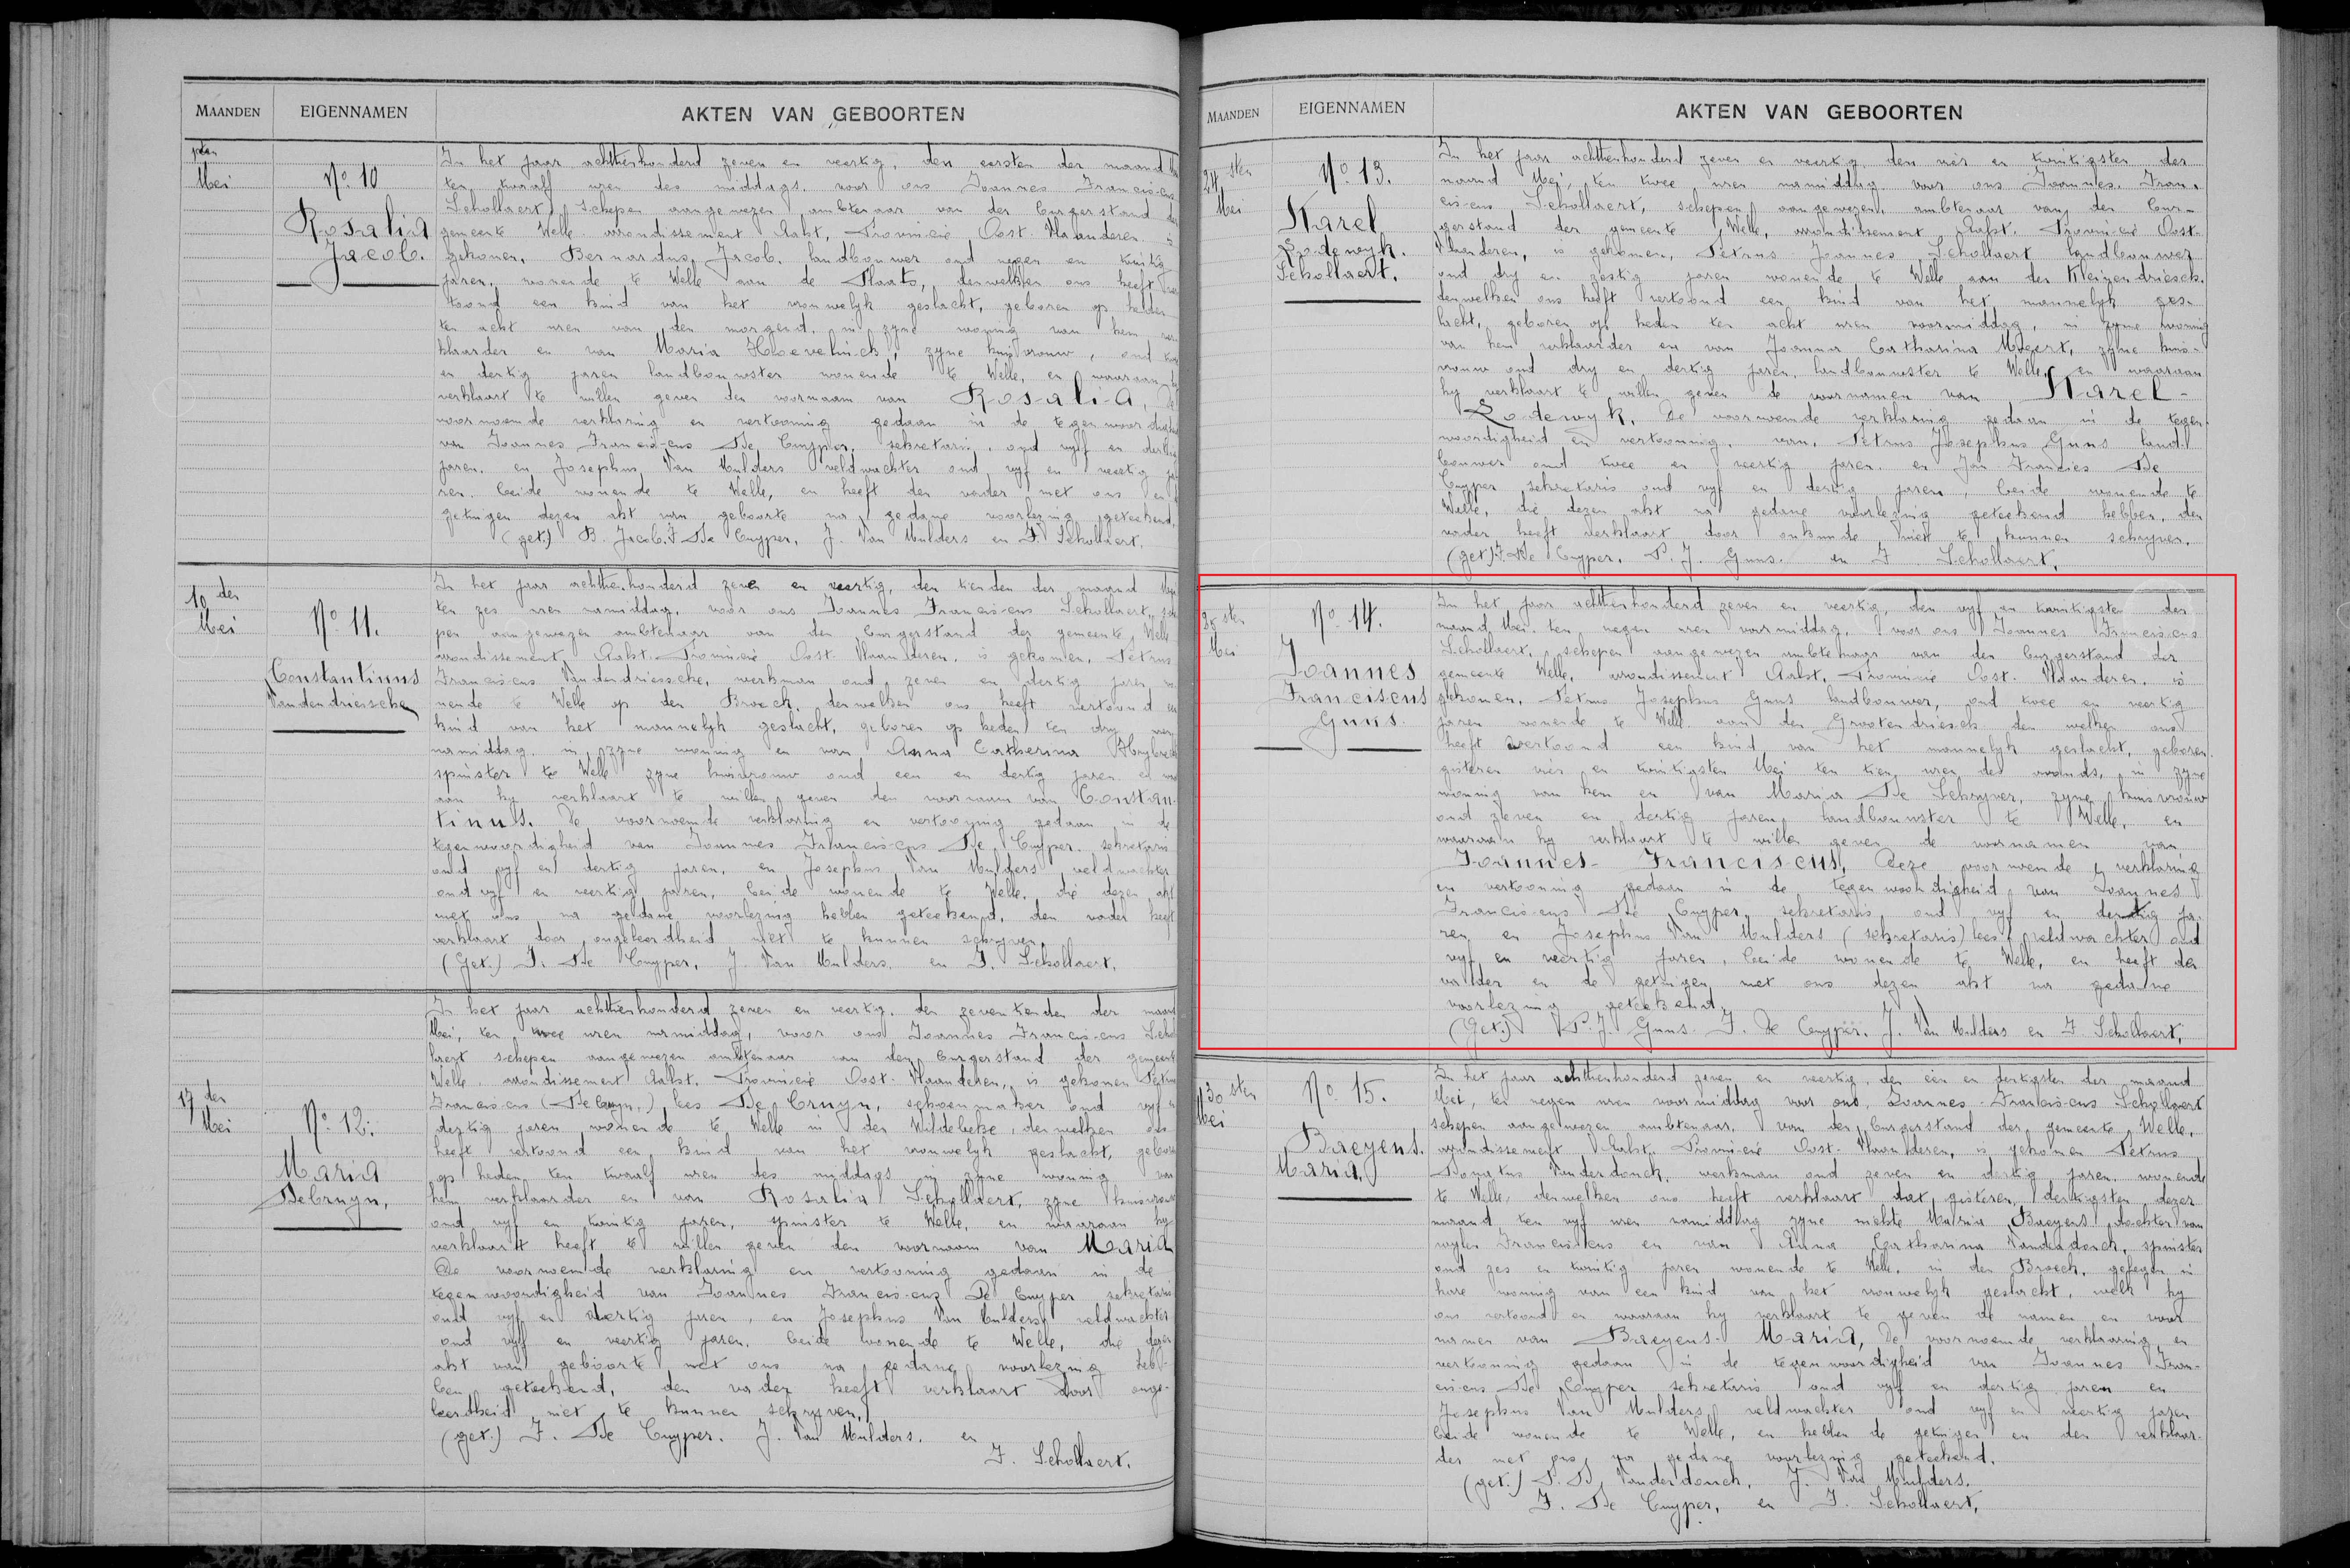 MAANDEN EIGENNAMEN AKTEN VAN GEBOORTEN
1sten
Mei
No. 10
Rosalia
Jacob.
In het jaar achttienhonderd zeven en veertig, den eersten der maand Mei
ten twaalf uren des middags, voor ons Joannes Franciscus
Schollaert, schepen aangewezen ambtenaar van den burgerstand der
gemeente Welle arrondissement Aalst, Provincie Oost-Vlaanderen is
gekomen, Bernardus Jacob, landbouwer oud negen en twintig
jaren, wonende te Welle aan de Plaats, denwelken ons heeft ver-
toond een kind van het vrouwelyk geslacht, geboren op heden
ten acht uren van den morgend, in zyne woning van hem ver-
klaarder en van Maria Haevelinck, zyne huisvrouw, oud
en dertig jaren landbouwster wonende te Welle, en waaraan hy
verklaart te willen geven den voornaam van Rosalia, De
voornoemde verklaring en vertooning gedaan in de tegenwoordigheid
van Joannes Franciscus De Cuyper, sekretaris, oud vyf en dertig
jaren, en Josephus Van Mulders veldwachter oud vyf en veertig ja-
ren, beide wonende te Welle, en heeft den vader met ons en
getuigen dezen akt van geboorte na gedane voorlezing geteekend,
(get.) B. Jacob. J. De Cuyper, J. Van Mulders en J. Schollaert.
10 den
Mei
No. 11.
Constantinus
Vandendriessche
In het jaar achttienhonderd zeven en veertig, den tienden der maand Mei
ten zes uren namiddag, voor ons Joannes Franciscus Schollaert, sche-
pen aangewezen ambtenaar van den burgerstand der gemeente Welle
arrondissement Aalst, Provincie Oost-Vlaanderen, is gekomen, Petrus
Franciscus Vandendriessche, werkman oud zeven en dertig jaren wo-
nende te Welle op den Broeck, denwelken ons heeft vertoond een
kind van het mannelyk geslacht, geboren op heden ten dry uren
namiddag, in zyne woning en van Anna Catherina
spinster te Welle zyne huisvrouw oud een en dertig jaren en waar-
aan hy verklaart te willen geven den voornaam van Constan-
tinus. De voornoemde verklaring en vertooning gedaan in de
tegenwoordigheid van Joannes Franciscus De Cuyper, sekretaris
oud vyf en dertig jaren, en Josephus Van Mulders veldwachter
oud vyf en veertig jaren, beide wonende te Welle, die dezen akt
met ons na gedane voorlezing hebben geteekend, den vader heeft
verklaart door ongeleerdheid niet te kunnen schryven.
(Get.) J. De Cuyper, J. Van Mulders, en J. Schollaert.
17 den
Mei
No. 12.
Maria
DeCruyn,
In het jaar achttienhonderd zeven en veertig, den zeventienden der maand
Mei, ten twee uren namiddag, voor ons Joannes Franciscus Schol-
laert schepen aangewezen ambtenaar van den burgerstand der gemeente
Welle, arrondissement Aalst, Provincie Oost-Vlaanderen, is gekomen Petrus
Franciscus (DeCuyn,) lees De Cruyn, schoenmaker oud vyf en
dertig jaren wonende te Welle in den Wildebeke, denwelken ons
heeft vertoond een kind van het vrouwelyk geslacht, geboren
op heden ten twaalf uren des middags in zyne woning van
hem verklaarder en van Rosalia Schollaert, zyne huisvrouw
oud vyf en twintig jaren, spinster te Welle, en waaraan hy
verklaart heeft te willen geven den voornaam van Maria
De voornoemde verklaring en vertooning gedaan in de
tegenwoordigheid van Joannes Franciscus De Cuyper sekretaris
oud vyf en dertig jaren, en Josephus Van Mulders veldwachter
oud vyf en veertig jaren, beide wonende te Welle, die dezen
akt van geboorte met ons na gedane voorlezing heb-
ben geteekend, den vader heeft verklaart door onge-
leerdheid niet te kunnen schryven.
(get.) J. De Cuyper. J. Van Mulders. en
J. Schollaert.
MAANDEN EIGENNAMEN AKTEN VAN GEBOORTEN
24sten
Mei
No. 13.
Karel
Lodewyk.
Schollaert.
In het jaar achttienhonderd zeven en veertig, den vier en twintigsten der
maand Mei, ten twee uren namiddag, voor ons Joannes Fran-
ciscus Schollaert, schepen aangewezen ambtenaar van den bur-
gerstand der gemeente Welle, arrondissement Aalst, Provincie Oost-
Vlaanderen, is gekomen, Petrus Joannes Schollaert landbouwer
oud dry en zestig jaren wonende te Welle aan den Kleizendriesch.
denwelken ons heeft vertoond een kind van het mannelyk ges-
lacht, geboren op heden ten acht uren voormiddag, in zyne woning
van hem verklaarder en van Joanna Catharina Meert, zyne huis-
vrouw oud dry en dertig jaren, landbouwster te Welle en waaraan
hy verklaart te willen geven de voornamen van Karel-
Lodewyk. De voornoemde verklaring gedaan in de tegen-
woordigheid en vertooning, van, Petrus Josephus Guns land-
bouwer oud twee en veertig jaren, en Jan Francies De
Cuyper sekretaris oud vyf en dertig jaren, beide wonende te
Welle, die dezen akt na gedane voorlezing geteekend hebben, den
vader heeft verklaart door onkunde niet te kunnen schryven.
(get.) J. De Cuyper, P. J. Guns. en J. Schollaert.
25sten
Mei
No. 14.
Joannes
Franciscus
Guns.
In het jaar achttienhonderd zeven en veertig, den vyf en twintigsten der
maand Mei, ten negen uren voormiddag, voor ons Joannes Franciscus
Schollaert, schepen aangewezen ambtenaar van den burgerstand der
gemeente Welle, arrondissement Aalst, Provincie Oost-Vlaanderen, is
gekomen, Petrus Josephus Guns landbouwer, oud twee en veertig
jaren wonende te Welle aan den Grootendriesch den welken ons
heeft vertoond een kind van het mannelyk geslacht, geboren
gisteren vier en twintigsten Mei ten tien uren des avonds, in zyne
woning van hem en van Maria De Schryver, zyne huisvrouw
oud zeven en dertig jaren landbouwster te Welle, en
waaraan hy verklaart te willen geven de voornamen van
Joannes-Franciscus, Deze voornoemde verklaring
en vertooning gedaan in de tegenwoordigheid van Joannes
Franciscus De Cuyper, sekretaris oud vyf en dertig ja-
ren en Josephus Van Mulders (sekretaris) lees veldwachter oud
vyf en veertig jaren, beide wonende te Welle, en heeft den
vader en de getuigen met ons dezen akt na gedane
voorlezing geteekend.
(Get.) P. J. Guns. J. De Cuyper. J. Van Mulders en J. Schollaert.
30sten
Mei
No. 15.
Baeyens.
Maria.
In het jaar achttienhonderd zeven en veertig, den een en dertigsten der maand
Mei, ten negen uren voormiddag voor ons, Joannes-Franciscus Schollaert
schepen aangewezen ambtenaar, van den burgerstand der gemeente Welle,
arrondissement Aalst, Provincie Oost-Vlaanderen, is gekomen Petrus
Donatus Vanderdonck, werkman oud zeven en dertig jaren, wonende
te Welle, denwelken ons heeft verklaart dat gisteren, dertigsten dezer
maand, ten vyf uren namiddag zyne nichte Maria Baeyens dochter van
wylen Franciscus en van Anna Catharina Vanderdonck, spinster
oud zes en twintig jaren wonende te Welle, in den Broeck, gelegen in
hare woning van een kind van het vrouwelyk geslacht, welk hy
ons vertoond en waaraan hy verklaart te geven de namen en voor
namen van Baeyens-Maria, De voornoemde verklaring en
vertooning gedaan in de tegenwoordigheid van Joannes Fran-
ciscus De Cuyper sekretaris oud vyf en dertig jaren en
Josephus Van Mulders veldwachter oud vyf en veertig jaren
beide wonende te Welle, en hebben de getuigen en den verklaar-
der met ons na gedane voorlezing geteekend.
(get.) P. D. Vanderdonck, J. Van Mulders.
J. De Cuyper, en J. Schollaert.